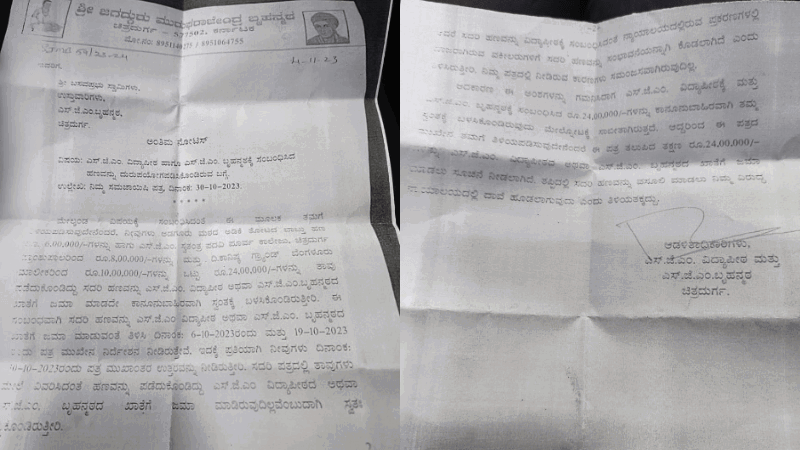 ಶ್ರೀ ಜಗದ್ಗುರು ಮುರುಘರಾಜೇಂದ್ರ ಬೃಹನ್ಮಠ
ಚಿತ್ರದುರ್ಗ - 577502, ಕರ್ನಾಟಕ
8951064755
4.11.23
ಶ್ರೀ ಬಸವಪ್ರಭು ಸ್ವಾಮಿಗಳು,
ಉಸ್ತುವಾರಿಗಳು,
ಎಸ್.ಜೆ.ಎಂ.ಬೃಹನ್ಮಠ,
ಚಿತ್ರದುರ್ಗ.
ಅಂತಿಮ ನೋಟಿಸ್
ವಿಷಯ: ಎಸ್.ಜೆ.ಎಂ. ವಿದ್ಯಾಪೀಠ ಹಾಗೂ ಎಸ್.ಜೆ.ಎಂ. ಬೃಹನ್ಮಠಕ್ಕೆ ಸಂಬಂಧಿಸಿದ
ಹಣವನ್ನು ದುರುಪಯೋಗಪಡಿಸಿಕೊಂಡಿರುವ ಬಗ್ಗೆ.
ಉಲ್ಲೇಖ: ನಿಮ್ಮ ಸಮಜಾಯಿಷಿ ಪತ್ರ, ದಿನಾಂಕ: 30-10-2023.
*****
ಮೇಲ್ಕಂಡ ವಿಷಯಕ್ಕೆ ಸಂಬಂಧಿಸಿದಂತೆ ಈ ಮೂಲಕ ತಮಗೆ
ನೀವುಗಳು ಮಠದ ಅಡಿಕೆ ತೋಟದ
6,00,000/-ಗಳನ್ನು ಹಾಗು ಎಸ್.ಜೆ.ಎಂ ಸ್ವತಂತ್ರ ಪದವಿ ಪೂರ್ವ ಕಾಲೇಜು, ಚಿತ್ರದುರ್ಗ
ರೂ.8,00,000/-ಗಳನ್ನು ಮತ್ತು ಗ್ರ್ಯಾಂಡ್ ಬೆಂಗಳೂರು
ಮಾಲೀಕರಿಂದ ರೂ.10,00,000/-ಗಳನ್ನು ಒಟ್ಟು ರೂ.24,00,000/-ಗಳನ್ನು ತಾವು
ಪಡೆದುಕೊಂಡಿದ್ದು ಸದರಿ ಹಣವನ್ನು ಎಸ್.ಜೆ.ಎಂ ವಿದ್ಯಾಪೀಠ ಅಥವಾ ಎಸ್.ಜೆ.ಎಂ.ಬೃಹನ್ಮಠದ
ಖಾತೆಗೆ ಜಮಾ ಮಾಡದೇ ಕಾನೂನುಬಾಹಿರವಾಗಿ ಸ್ವಂತಕ್ಕೆ ಬಳಸಿಕೊಂಡಿರುತ್ತೀರಿ. ಈ
ಸಂಬಂಧವಾಗಿ ಸದರಿ ಹಣವನ್ನು ಎಸ್.ಜೆ.ಎಂ ವಿದ್ಯಾಪೀಠ ಅಥವಾ ಎಸ್.ಜೆ.ಎಂ.ಬೃಹನ್ಮಠದ
ಖಾತೆಗೆ ಜಮಾ ಮಾಡುವಂತೆ ತಿಳಿಸಿ ದಿನಾಂಕ: 6-10-2023ರಂದು ಮತ್ತು 19-10-2023
ಪತ್ರ ಮುಖೇನ ನಿರ್ದೇಶನ ನೀಡಿರುತ್ತೇವೆ. ಇದಕ್ಕೆ ಪ್ರತಿಯಾಗಿ ನೀವುಗಳು ದಿನಾಂಕ:
ಪತ್ರ ಮುಖಾಂತರ ಉತ್ತರವನ್ನು ನೀಡಿರುತ್ತೀರಿ. ಸದರಿ ಪತ್ರದಲ್ಲಿ ತಾವುಗಳು
ಮೇಲೆ ವಿವರಿಸಿದಂತೆ ಹಣವನ್ನು ಪಡೆದುಕೊಂಡಿದ್ದು ಎಸ್.ಜೆ.ಎಂ ವಿದ್ಯಾಪೀಠದ ಅಥವಾ
ಬೃಹನ್ಮಠದ ಖಾತೆಗೆ ಜಮಾ ಮಾಡಿರುವುದಿಲ್ಲವೆಂಬುದಾಗಿ ಸ್ವತಃ
ಸದರಿ ಹಣವನ್ನು ವಿದ್ಯಾಪೀಠಕ್ಕೆ ಸಂಬಂಧಿಸಿದಂತೆ ನ್ಯಾಯಾಲಯದಲ್ಲಿರುವ ಪ್ರಕರಣಗಳಲ್ಲಿ
ವಕೀಲರುಗಳಿಗೆ ಸದರಿ ಹಣವನ್ನು ಸಂಭಾವನೆಯನ್ನಾಗಿ ಕೊಡಲಾಗಿದೆ ಎಂದು
ನಿಮ್ಮ ಪತ್ರದಲ್ಲಿ ನೀಡಿರುವ ಕಾರಣಗಳು ಸಮಂಜಸವಾಗಿರುವುದಿಲ್ಲ.
ಈ ಅಂಶಗಳನ್ನು ಗಮನಿಸಿದಾಗ ಎಸ್.ಜೆ.ಎಂ. ವಿದ್ಯಾಪೀಠಕ್ಕೆ ಮತ್ತು
ಬೃಹನ್ಮಠಕ್ಕೆ ಸಂಬಂಧಿಸಿದ ರೂ.24,00,000/-ಗಳನ್ನು ಕಾನೂನುಬಾಹಿರವಾಗಿ ತಮ್ಮ
ಸ್ವಂತಕ್ಕೆ ಬಳಸಿಕೊಂಡಿರುವುದು ಮೇಲ್ನೋಟಕ್ಕೆ ಸಾಬೀತಾಗಿರುತ್ತದೆ. ಆದ್ದರಿಂದ ಈ ಪತ್ರದ
ಮುಖೇನ ತಮಗೆ ತಿಳಿಯಪಡಿಸುವುದೇನೆಂದರೆ ಈ ಪತ್ರ ತಲುಪಿದ ತಕ್ಷಣ ರೂ.24,00,000/-
ಎಸ್.ಜೆ.ಎಂ. ವಿದ್ಯಾಪೀಠದ ಅಥವಾ ಎಸ್.ಜೆ.ಎಂ.ಬೃಹನ್ಮಠದ ಖಾತೆಗೆ ಜಮಾ
ಮಾಡಲು ಸೂಚನೆ ನೀಡಲಾಗಿದೆ. ತಪ್ಪಿದಲ್ಲಿ ಸದರಿ ಹಣವನ್ನು ವಸೂಲಿ ಮಾಡಲು ನಿಮ್ಮ ವಿರುದ್ಧ
ನ್ಯಾಯಾಲಯದಲ್ಲಿ ದಾವೆ ಹೂಡಲಾಗುವುದು ಎಂದು ತಿಳಿಯತಕ್ಕದ್ದು.
ಆಡಳಿತಾಧಿಕಾರಿಗಳು,
ಎಸ್.ಜೆ.ಎಂ. ವಿದ್ಯಾಪೀಠ ಮತ್ತು
ಎಸ್.ಜೆ.ಎಂ.ಬೃಹನ್ಮಠ
ಚಿತ್ರದುರ್ಗ.